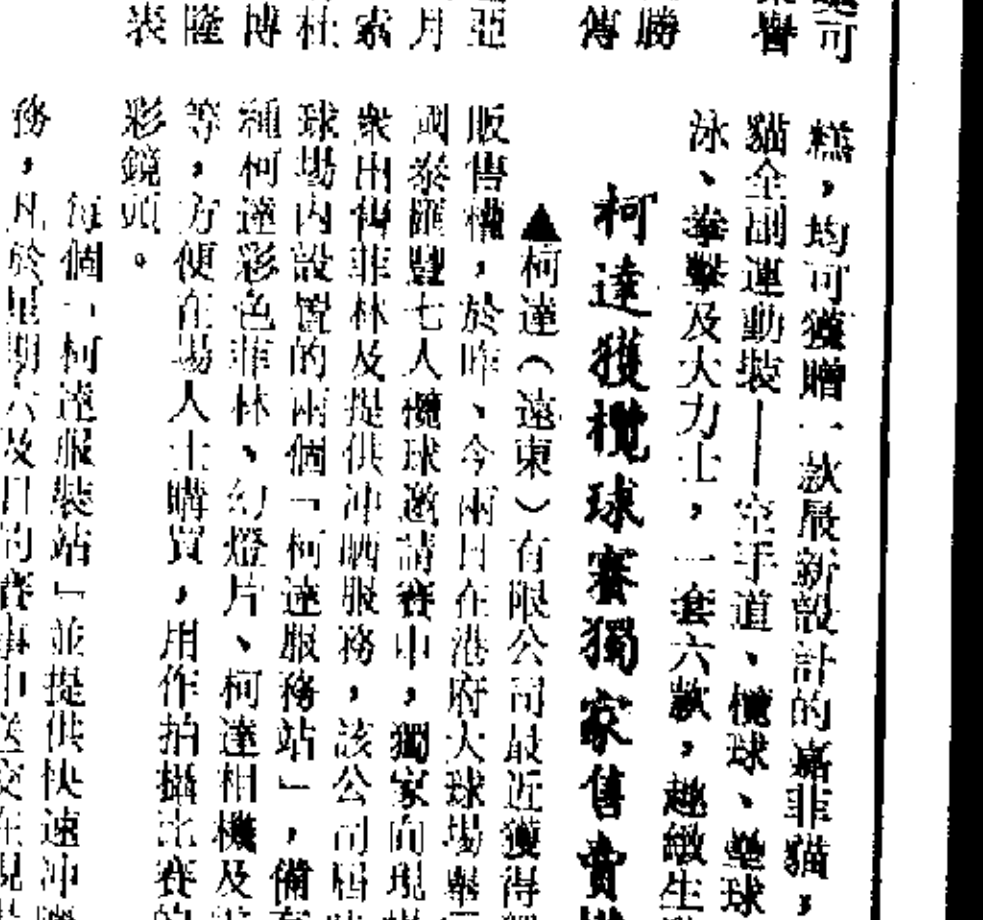 可
糕，均可獲贈一款最新設計的嘉菲貓，
譽
貓全副運動裝——空手道、欖球、壘球
泳、拳擊及大力士，一套六款，趣緻生
勝
傳
柯達獲欖球賽獨家售賣
▲柯達（遠東）有限公司最近獲得
亞
販售權，於昨、今兩日在港府大球場舉
月
國泰匯豐七人欖球邀請賽中，獨家向現
索
衆出售菲林及提供冲晒服務，該公司屆
杜
球場內設置的兩個「柯達服務站」，備有
博
種柯達彩色菲林、幻燈片、柯達相機及
隆
等，方便在場人士購買，用作拍攝比賽的
表
彩鏡頭。
每個「柯達服裝站」並提供快速冲
務，凡於星期六及日的賽事中送交在現